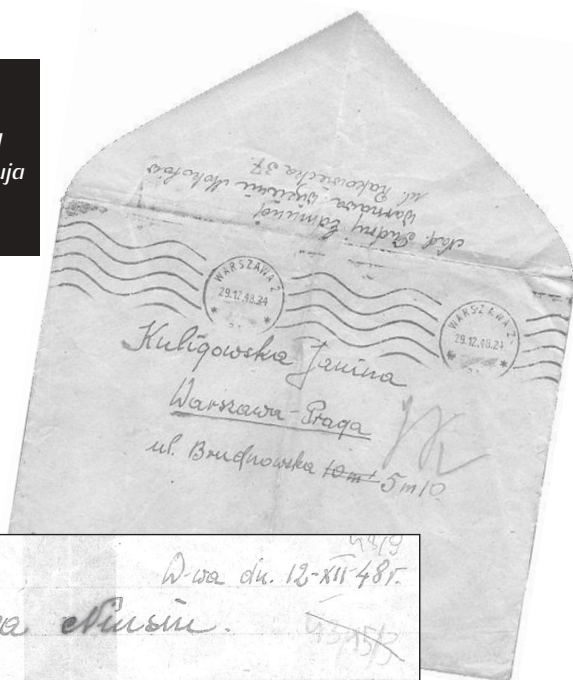 uja
Nad. Sudny Edmund
Warszawa więzienie Mokotów
ul. Rakowiecka 37.
WARSZAWA 2
29.12.48.24
WARSZAWA 2
29.12.48.24
Kuligowska Janina
Warszawa-Praga
ul. Brudnowska 10 m 5 m 10
W-wa dn. 12-XII-48r.
Niusiu.